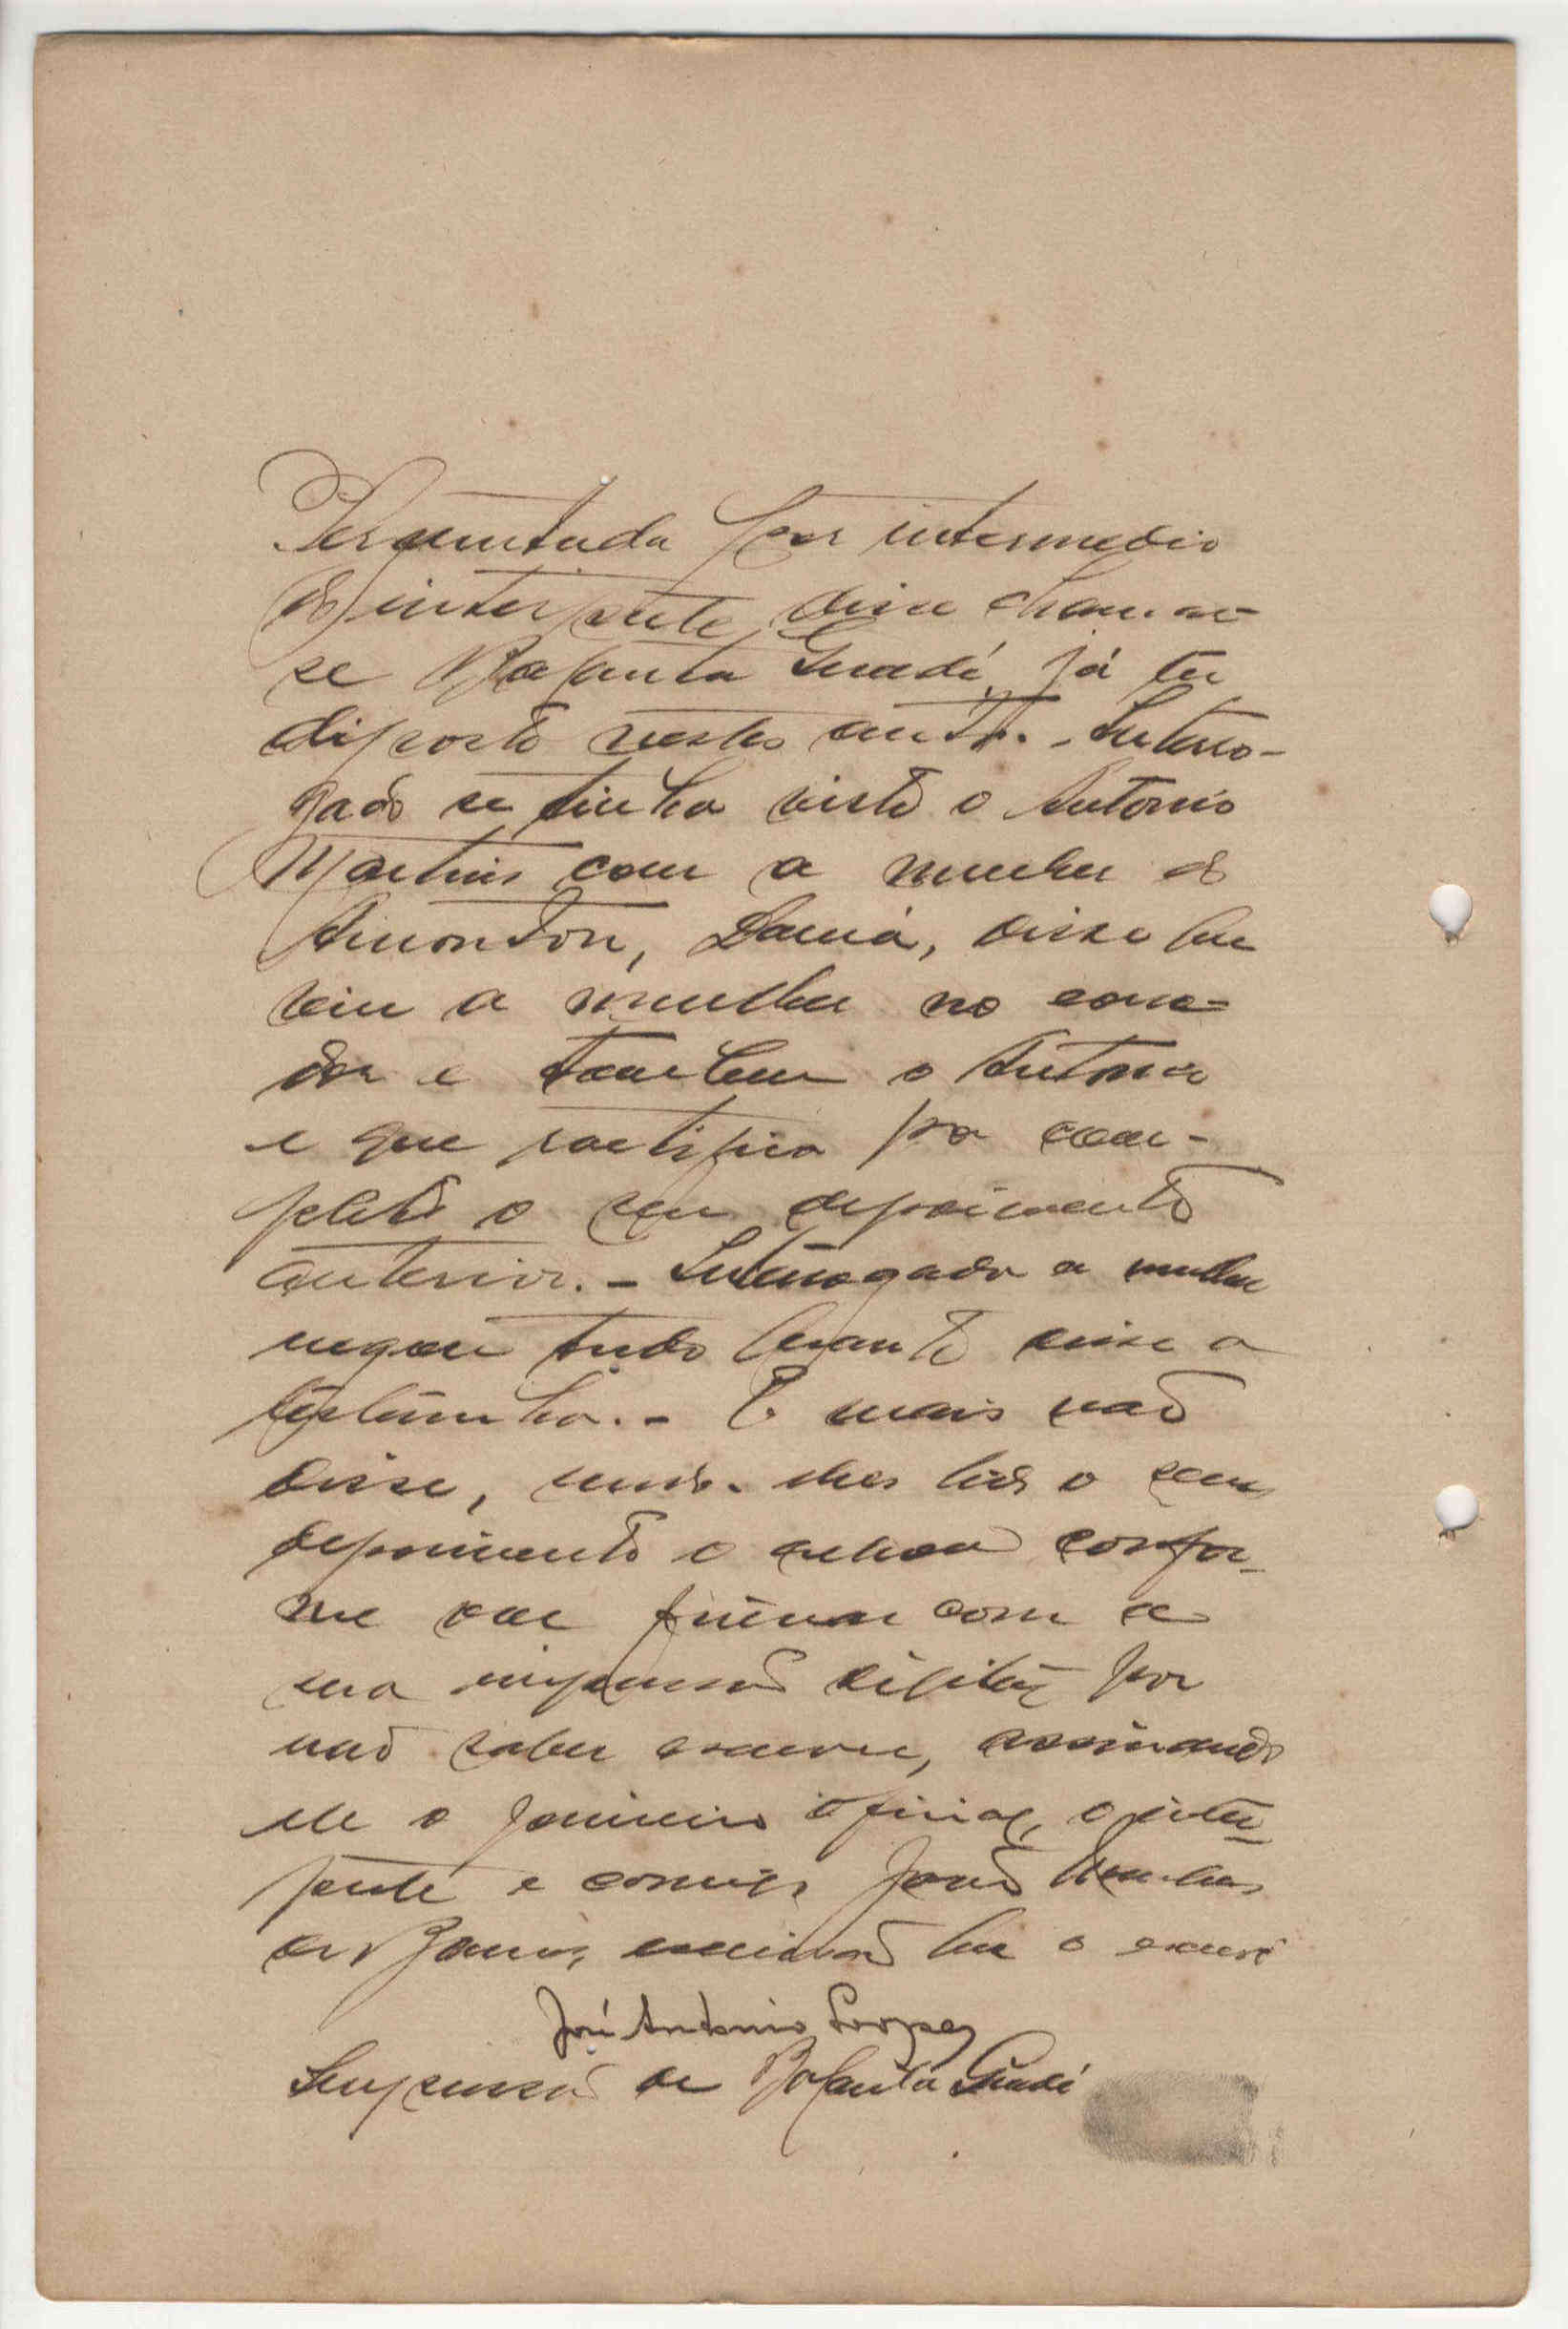 Perguntada por intermedio
do interprete, disse chamar-
se Bafanta Guadi, já ter
diposto nestes autos. - Interro-
gado se tinha visto o Antonio
Martins com a mulher do
disse que
viu a mulher no corre-
dor e tambem o Antonio
e que ratifica por com-
pleto o seu depoimento
anterior. - Interrogada a mulher
negou tudo quanto disse a
testemunha. - E mais não
disse, sendo-lhes lido o seu
depoimento o achou confor-
me vae firmar com a
sua impressão digital por
não saber escrever, assinando
ele o primeiro oficial, o inter-
prete e comigo João
de Barros, escrivão que o escrevi
José Antonio Lopes
Impressão de Bafanta Guadi